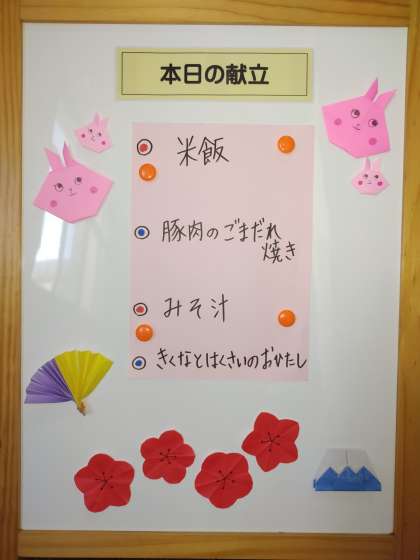 本日の献立
米飯
豚肉のごまだれ
焼き
みそ汁
きくなとはくさいのおかたし